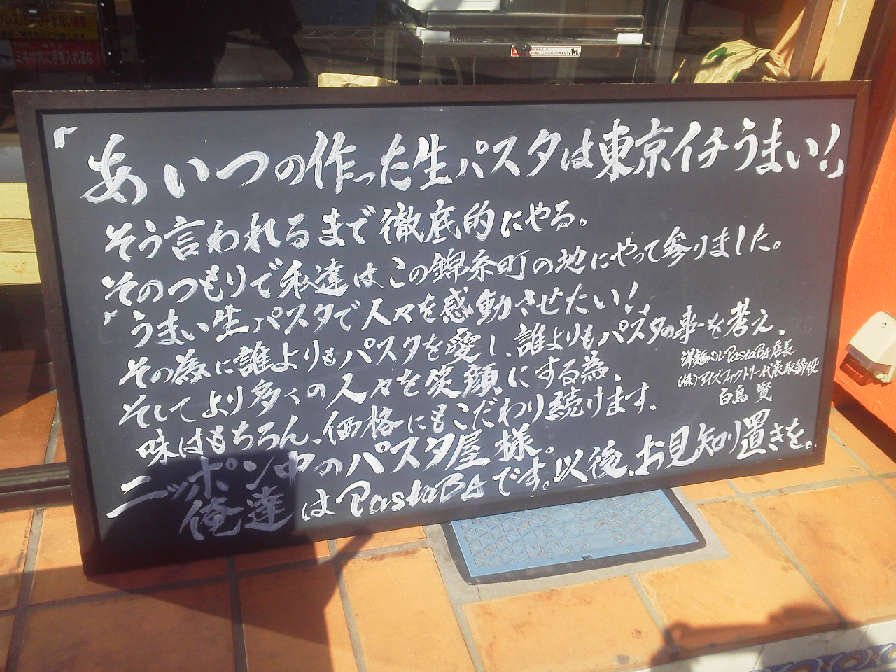 「あいつの作った生パスタは東京イチうまい！」
そう言われるまで徹底的にやる。
そのつもりで私達はこの錦糸町の地にやって参りました。
「うまい生パスタで人々を感動させたい！」
その為に誰よりもパスタを愛し、誰よりもパスタの事を考え、
そしてより多くの人々を笑顔にする為、
味はもちろん、価格にもこだわり続けます。
店長
白鳥 賢
ニッポン中のパスタ屋様。
俺達はPastaBAです。以後、お見知り置きを。